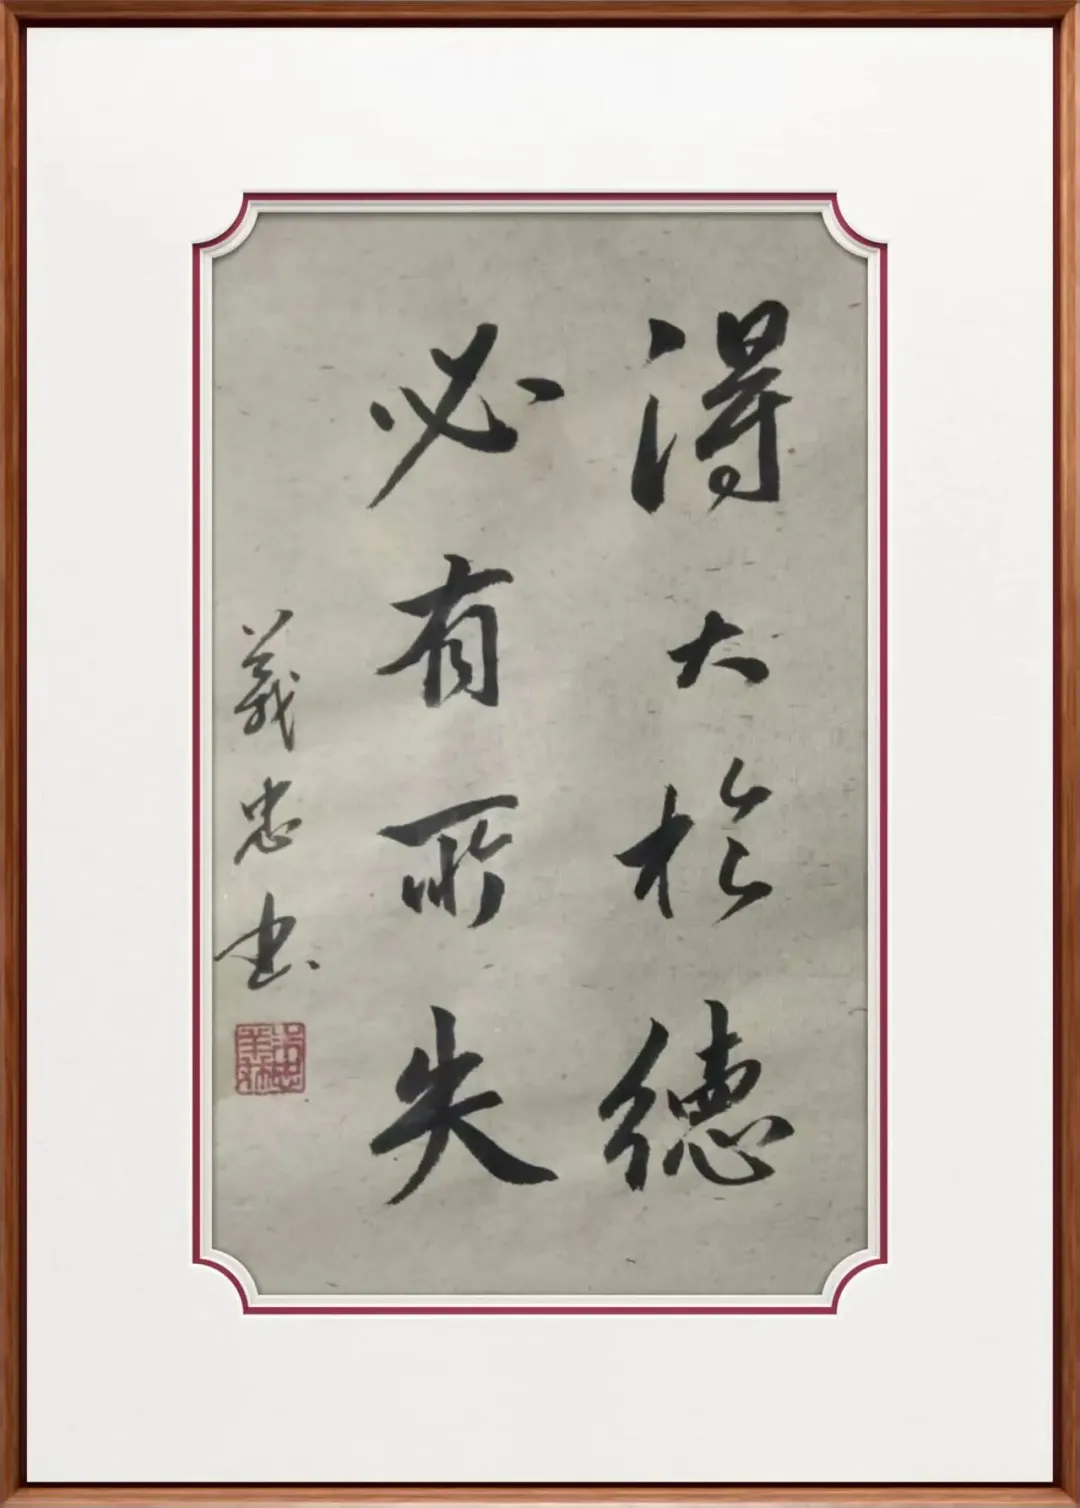 得大於德
必有所失
義忠书